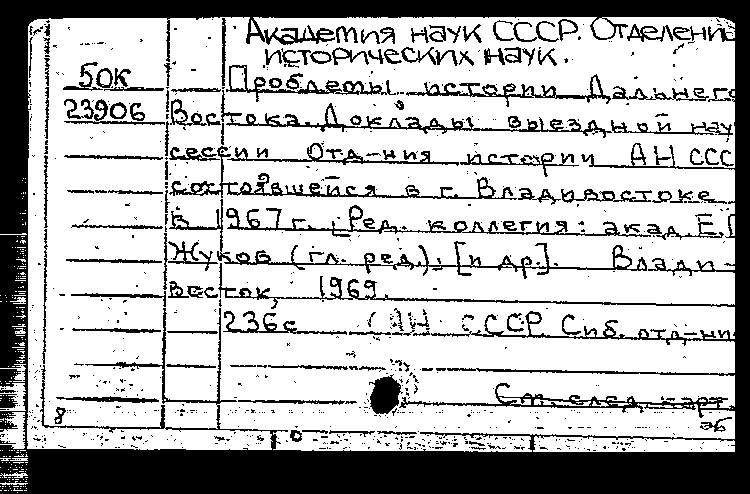 Академия наук СССР. Отделение
исторических наук.
50к Проблемы истории Дальнего
23906 Востока. Доклады выездной нау
сессии Отд-ния истории АН ССС
состоявшейся в г. Владивостоке
в 1967 г. [Ред. коллегия: акад. Е.
Жуков (гл. ред.), [и др.]. Влади-
восток, 1969.
236с (АН СССР Сиб. отд-ни
См. след. карт.
8